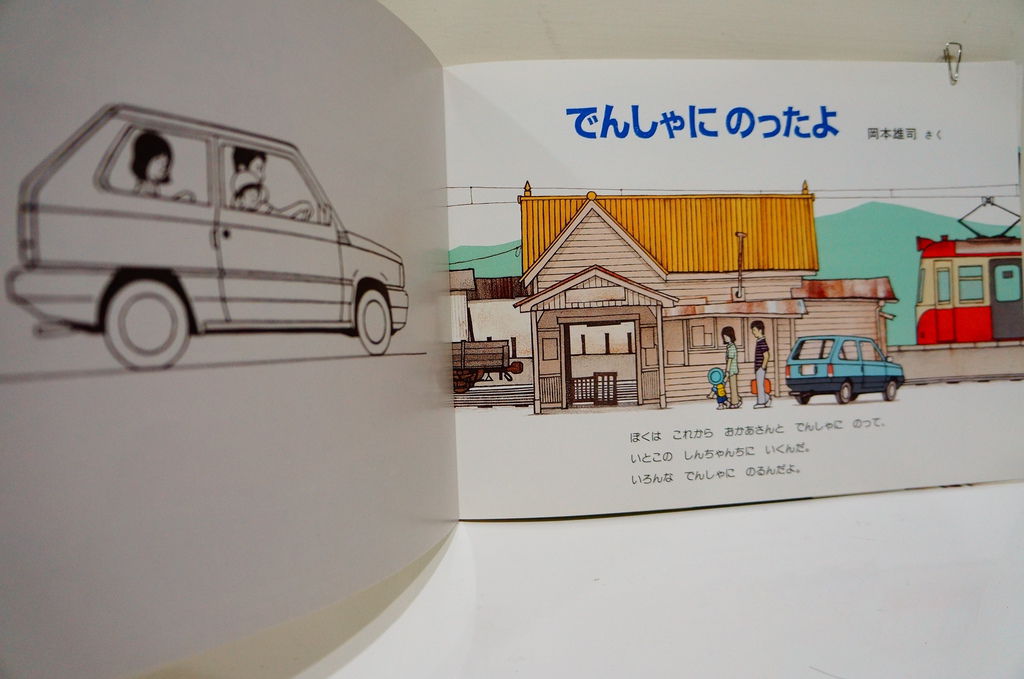 でんしゃに のったよ
岡本雄司 さく
ぼくは これから おかあさんと でんしゃに のって、
いとこの しんちゃんちに いくんだ。
いろんな でんしゃに のるんだよ。